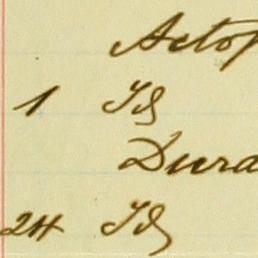 Actop
1 Id
Dura
24 Id